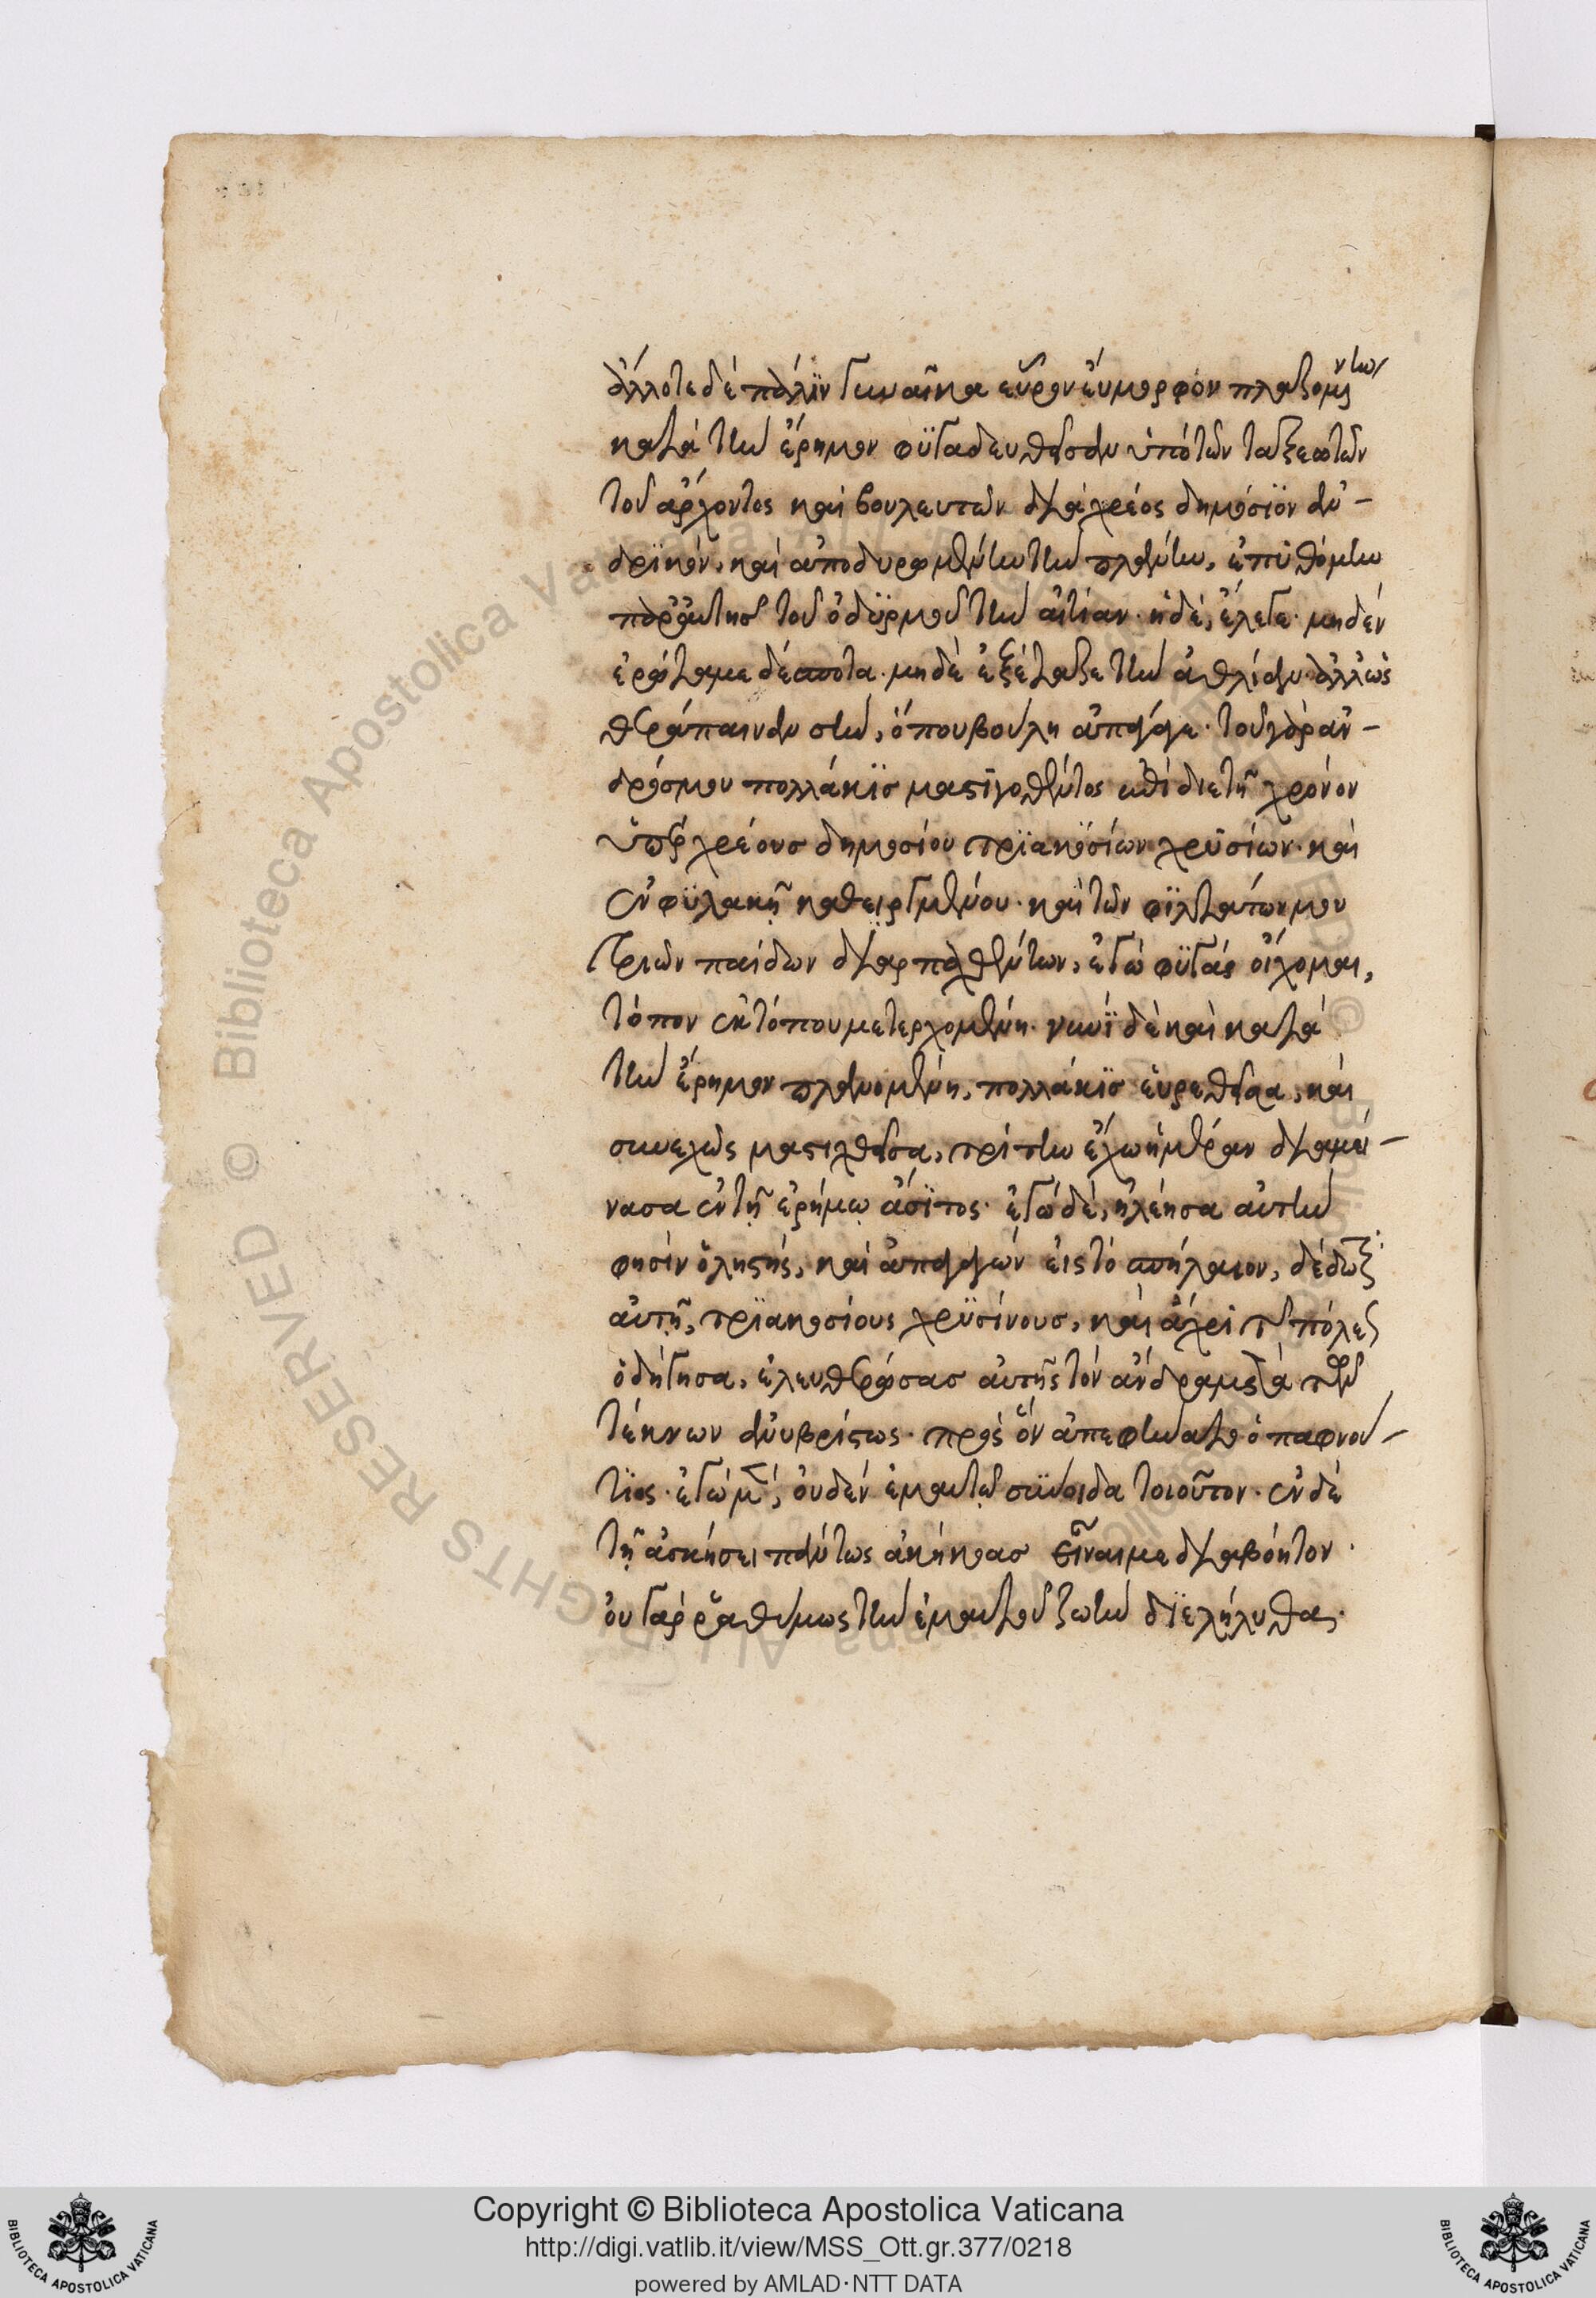 ἄλλοτε δὲ πάλϊν γυναῖκα εὗρον ἔυμορφον πλαζομένην
κατὰ τὴν ἔρημον φϋγαδευθεῖσαν ὑπὸ τῶν ταξεωτῶν
τοῦ ἄρχοντος καὶ βουλευτῶν διὰ χρέος δημόσϊον ἀν-
δρϊκόν, καὶ ἀποδυρομένην τὴν πλάνην, ἐπϋθόμην
παρ' ἀυτῆσ τοῦ ὀδϋρμοῦ τὴν αἰτίαν. ἡ δὲ, ἔλεγε. μηδέν
ἐρώτα με δέσποτα. μηδὲ ἐξέταζε τὴν ἀθλίαν. ἀλλ' ὡς
θεράπαινάν σου, ὅπου βούλη ἄπαγαγε. τοῦ γὰρ ἀν-
δρόσ μου πολλάκϊσ μαστιγοθέντος ἐπὶ διετῆ χρόνον
ὑπὲρ χρέουσ δημοσίου τρϊακοσίων χρϋσίων. καὶ
ἐν φϋλακῇ καθειργμένου. καὶ τῶν φϊλτάτων μου
τριῶν παίδων διαρπαχθέντων, ἐγὼ φϋγὰς οἴχομαι,
τόπον ἐκ τόπου μετερχομένη. νυνῒ δὲ καὶ κατὰ
τὴν ἔρημον πλανομένη, πολλάκϊσ ἑυρεθεῖσα, καὶ
συνεχῶς μαστιχθεῖσα, τρίτην ἔχω ἡμέραν διαμεί-
νασα ἐν τῇ ἐρήμῳ ἄσϊτος. ἐγὼ δὲ, ἠλέησα αὐτὴν
φησὶν ὁ ληστής, καὶ ἀπαγαγὼν ἐις τὸ σπήλαιον, δέδωκα
αὐτῇ, τρϊακοσίους χρϋσίνουσ, καὶ ἄχρϊ τῆς πόλεως
ὁδήγησα, ἐλευθερώσασ αὐτῆς τὸν ἄνδρα μετὰ τῶν
τέκνων ἀνυβρίστως. πρὸς ὅν ἀπεφήνατο ὁ παφνού-
τϊος. ἐγὼ μὲν, ὀυδὲν ἐμαυτῷ σϋνοιδα τοιοῦτον. ἐν δὲ
τῇ ἀσκήσει πάντως ἀκήκοασ εἶναι με διαβόητον.
ὀυ γὰρ ῥαθύμως τὴν ἐμαυτοῦ ζωὴν δϊελήλυθα.
Copyright © Biblioteca Apostolica Vaticana
http://digi.vatlib.it/view/MSS_Ott.gr.377/0218
powered by AMLAD·NTT DATA